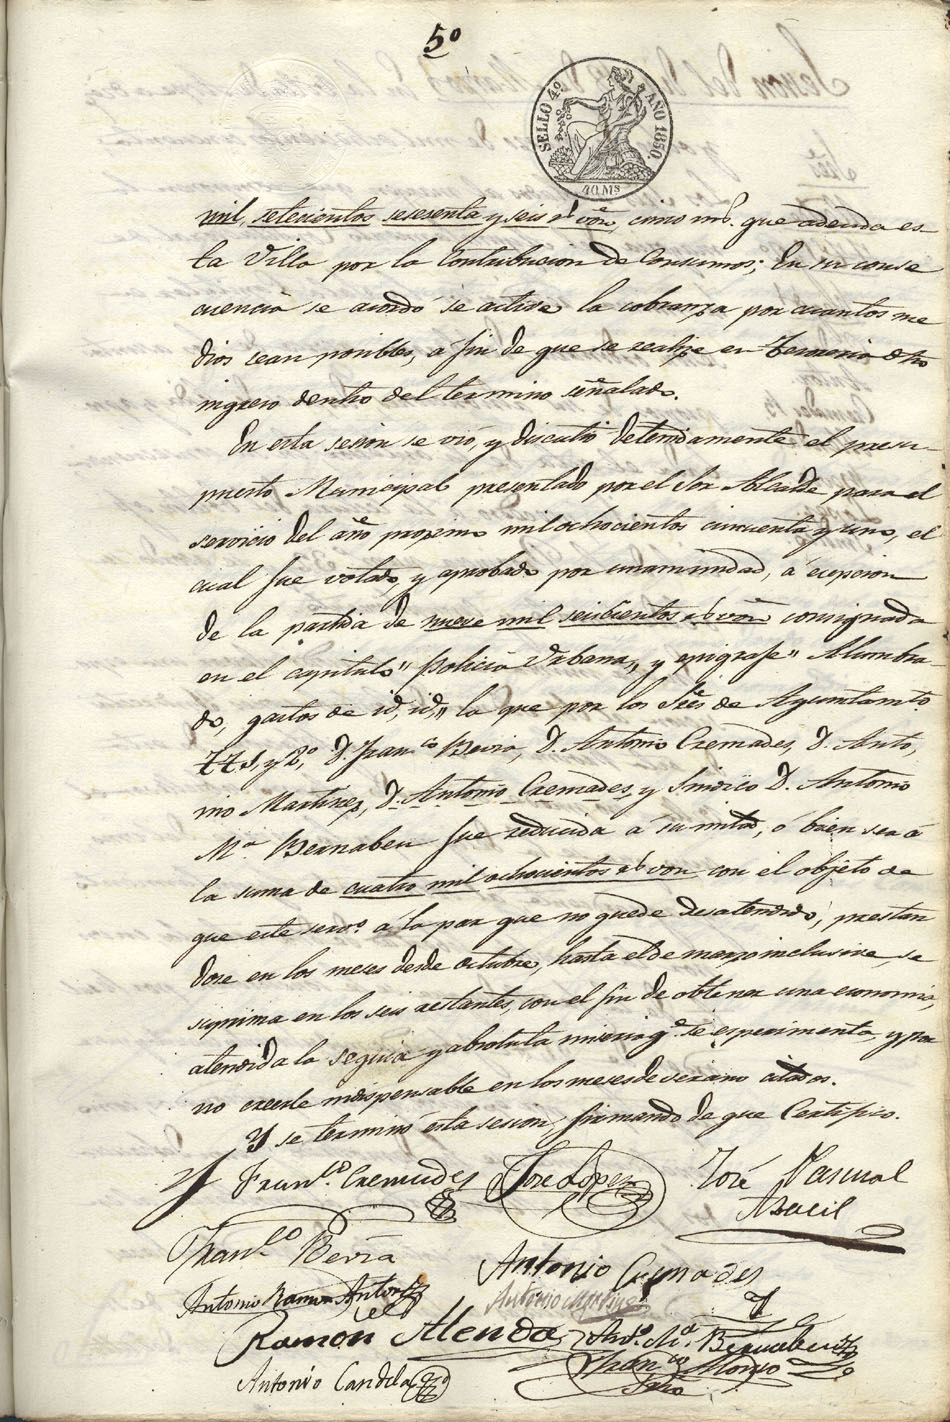 5º
SELLO 4º AÑO 1850.
40 Ms
mil, setecientos sesesenta y seis rs von, cinco ms. que adeuda es
ta Villa por la Contribucion de Consumos; En su conse
cuencia se acordó se active la cobranza por cuantos me
dios sean posibles, á fin de que se realize en Tesoreria dho
ingreso dentro del termino señalado.
En esta sesion se vió, y discutió detenidamente el presu-
puesto Municipal presentado por el Sor Alcalde para el
servicio del año proximo mil ochocientos cincuenta y uno, el
cual fue votado, y aprobado por unanimidad, á ecepcion
de la partida de nueve mil seiscientos rs von consignada
en el capitulo "Policia Urbana" y epigrafe "Alumbra-
do, gastos de id, id," la que por los Sres de Ayuntamto
1º, y 2º, D. Franco Beviá, D. Antonio Cremades, D. Anto,
nio Martinez, D. Antonio Cremades, y Sindico D. Antonio
Mª Bernabeu fue reducida á su mitad, ó bien sea á
la suma de cuatro mil ochocientos rs von con el objeto de
que este servo á la par que no quede desatendido, prestan
dose en los meses desde octubre, hasta el de marzo inclusive, se
suprima en los seis restantes, con el fin de obtener una economia,
atendida la sequia y absoluta miseria qe se esperimenta, y por
no creerle indispensable en los meses de verano citados.
Y se terminó esta sesion, firmando de que Certifico.
Franco Cremades José Lopez José Pascual
Abacil
Franco Beviá
Antonio Cremades
Antonio Ramon Antoni Antonio Martinez
Ramon Alenda Anto Mª Bernabeu
Antonio Candela Franco Alonso
Srio